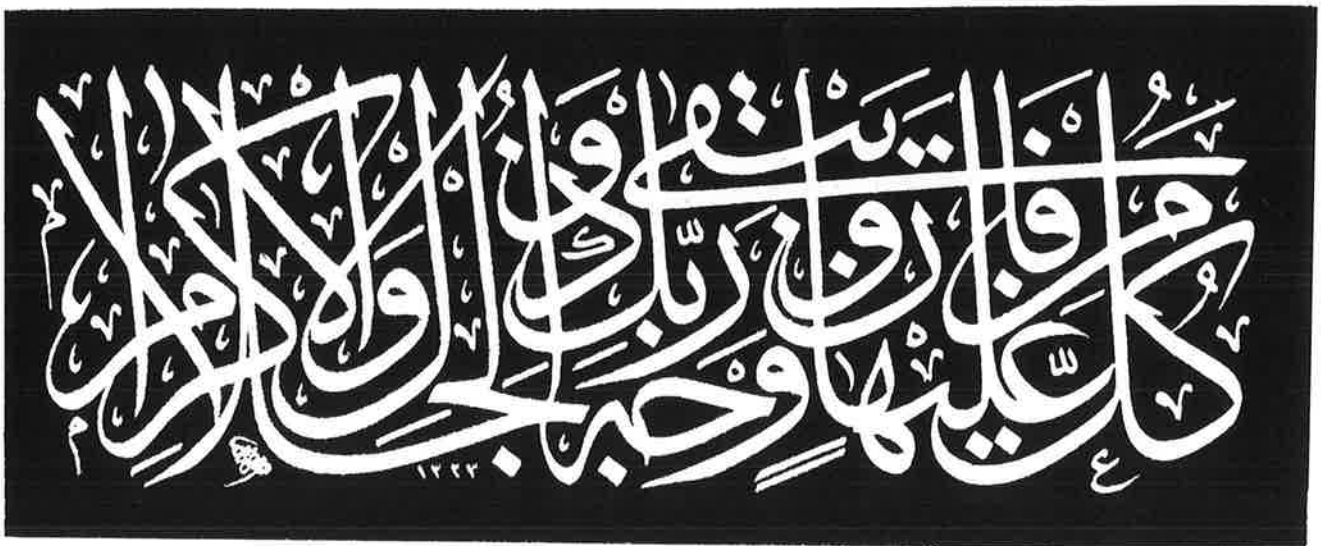 كُلُّ مَنْ عَلَيْهَا فَانٍ وَيَبْقَى وَجْهُ رَبِّكَ ذُو الْجَلَالِ وَالْإِكْرَامِ
١٢٢٣